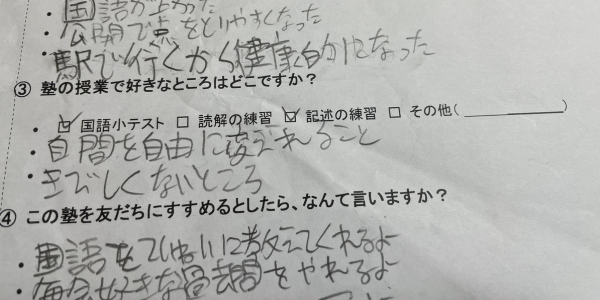 ・国語が上がった
・公開で点をとりやすくなった
・駅で行くから健康的になった
③ 塾の授業で好きなところはどこですか？
・☑ 国語小テスト □ 読解の練習 ☑ 記述の練習 □ その他(          )
・自間を自由に変えれること
・きびしくないところ
④ この塾を友だちにすすめるとしたら、なんて言いますか？
・国語をていねいに教えてくれるよ
・好きな過去問をやれるよ